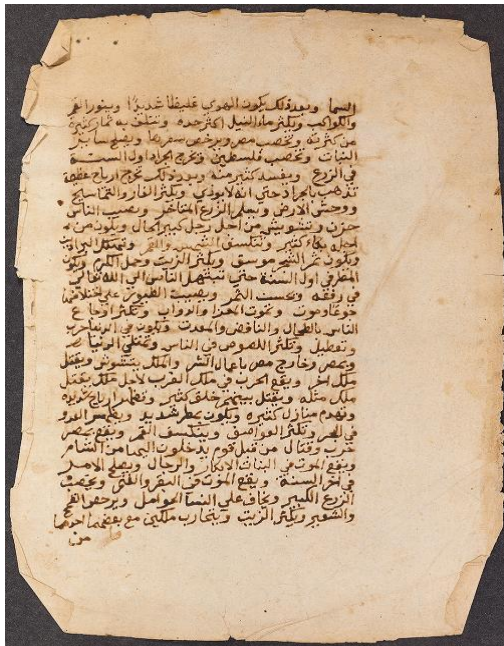 السما وبعد ذلك يكون الهوي غليظا غديرا وينور القمر
والكواكب ويكثر ماء النيل اكثر حده ويتلف به ثمار كثيرة
من كثرته وتخصب مصر ويرخص سعرها ويصلح ساير
النبات وتخصب فلسطين وتخرج الجراد اول السنة
في الزرع ويفسد كثير منه وبعد ذلك تخرج ارياح عظيمة
تذهب بالجراد حتي انه لا يوذي ويكثر الفار والتماسيح
ووحش الارض ويصلح الزرع المتاخر ويصيب الناس
حزن وتشويش من اجل رجل كبير الحال ويكون من
اجله بكاء كثير وتنكسف الشمس والقمر
ويكون ثمر الشجر موسق ويكثر الزيت وحمل الكرم ويكون
المطر في اول السنة حتي تبتهل الناس الي الله تعالي
في رفعه وتحسن الثمر ويصيب الطيور علي اختلافها
جوع وموت وتموت المعزا والدواب وتكثر اوجاع
الناس بالطحال والنافض والمعدة ويكون في الدنيا حرب
وتعطيل وتكثر اللصوص في الناس وتمتلي الدنيا
وبمصر وخارج مصر باعمال الشر والملك يتشوش ويقتل
ملك اخر ويقع الحرب في ملك الغرب لاجل ملك يقتل
ملك مثله ويقتل بينهم خلق كثير وتظهر ارياح شديدة
وتهدم منازل كثيره ويكون مطر شديد
في البحر وتكثر العواصف وينكسف القمر ويقع بمصر
حرب وقتال من قبل قوم يدخلون اليها من الشام
ويقع الموت في البنات الابكار والرجال ويصلح الامر
في اخر السنة ويقع الموت في البقر والغنم ويخصب
الزرع الكبير ويخاف علي النسا الحوامل ويرخص القمح
والشعير ويكثر الزيت ويتحارب ملكين مع بعضهما احدهما
من